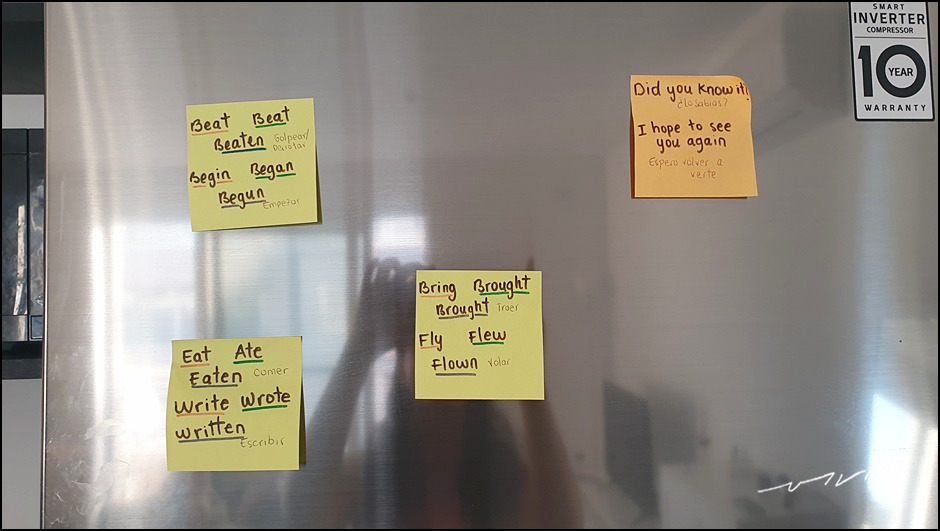 Beat Beat
Beaten Golpear/
Derrotar
Begin Began
Begun Empezar
Did you know it?
¿Losabias?
I hope to see
you again
Espero volver a
verte
SMART
INVERTER
COMPRESSOR
10 YEAR
WARRANTY
Bring Brought
Brought Traer
Fly Flew
Flown Volar
Eat Ate
Eaten Comer
Write Wrote
Written
Escribir